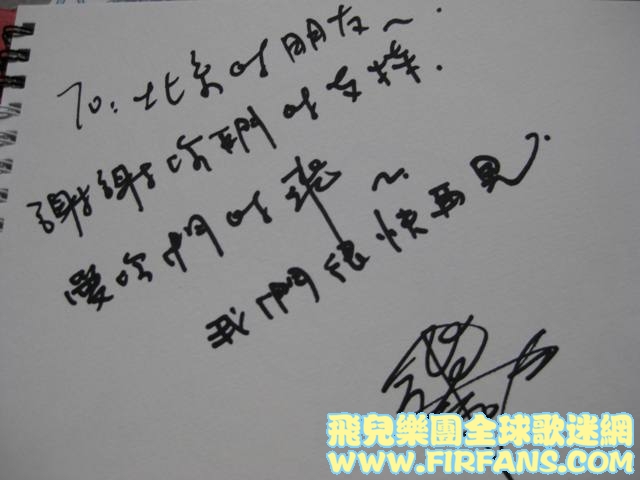 To: 北京的朋友~.
謝謝你們的支持.
愛你們的 ~.
我們很快再見.
飛兒樂團全球歌迷網
WWW.FIRFANS.COM